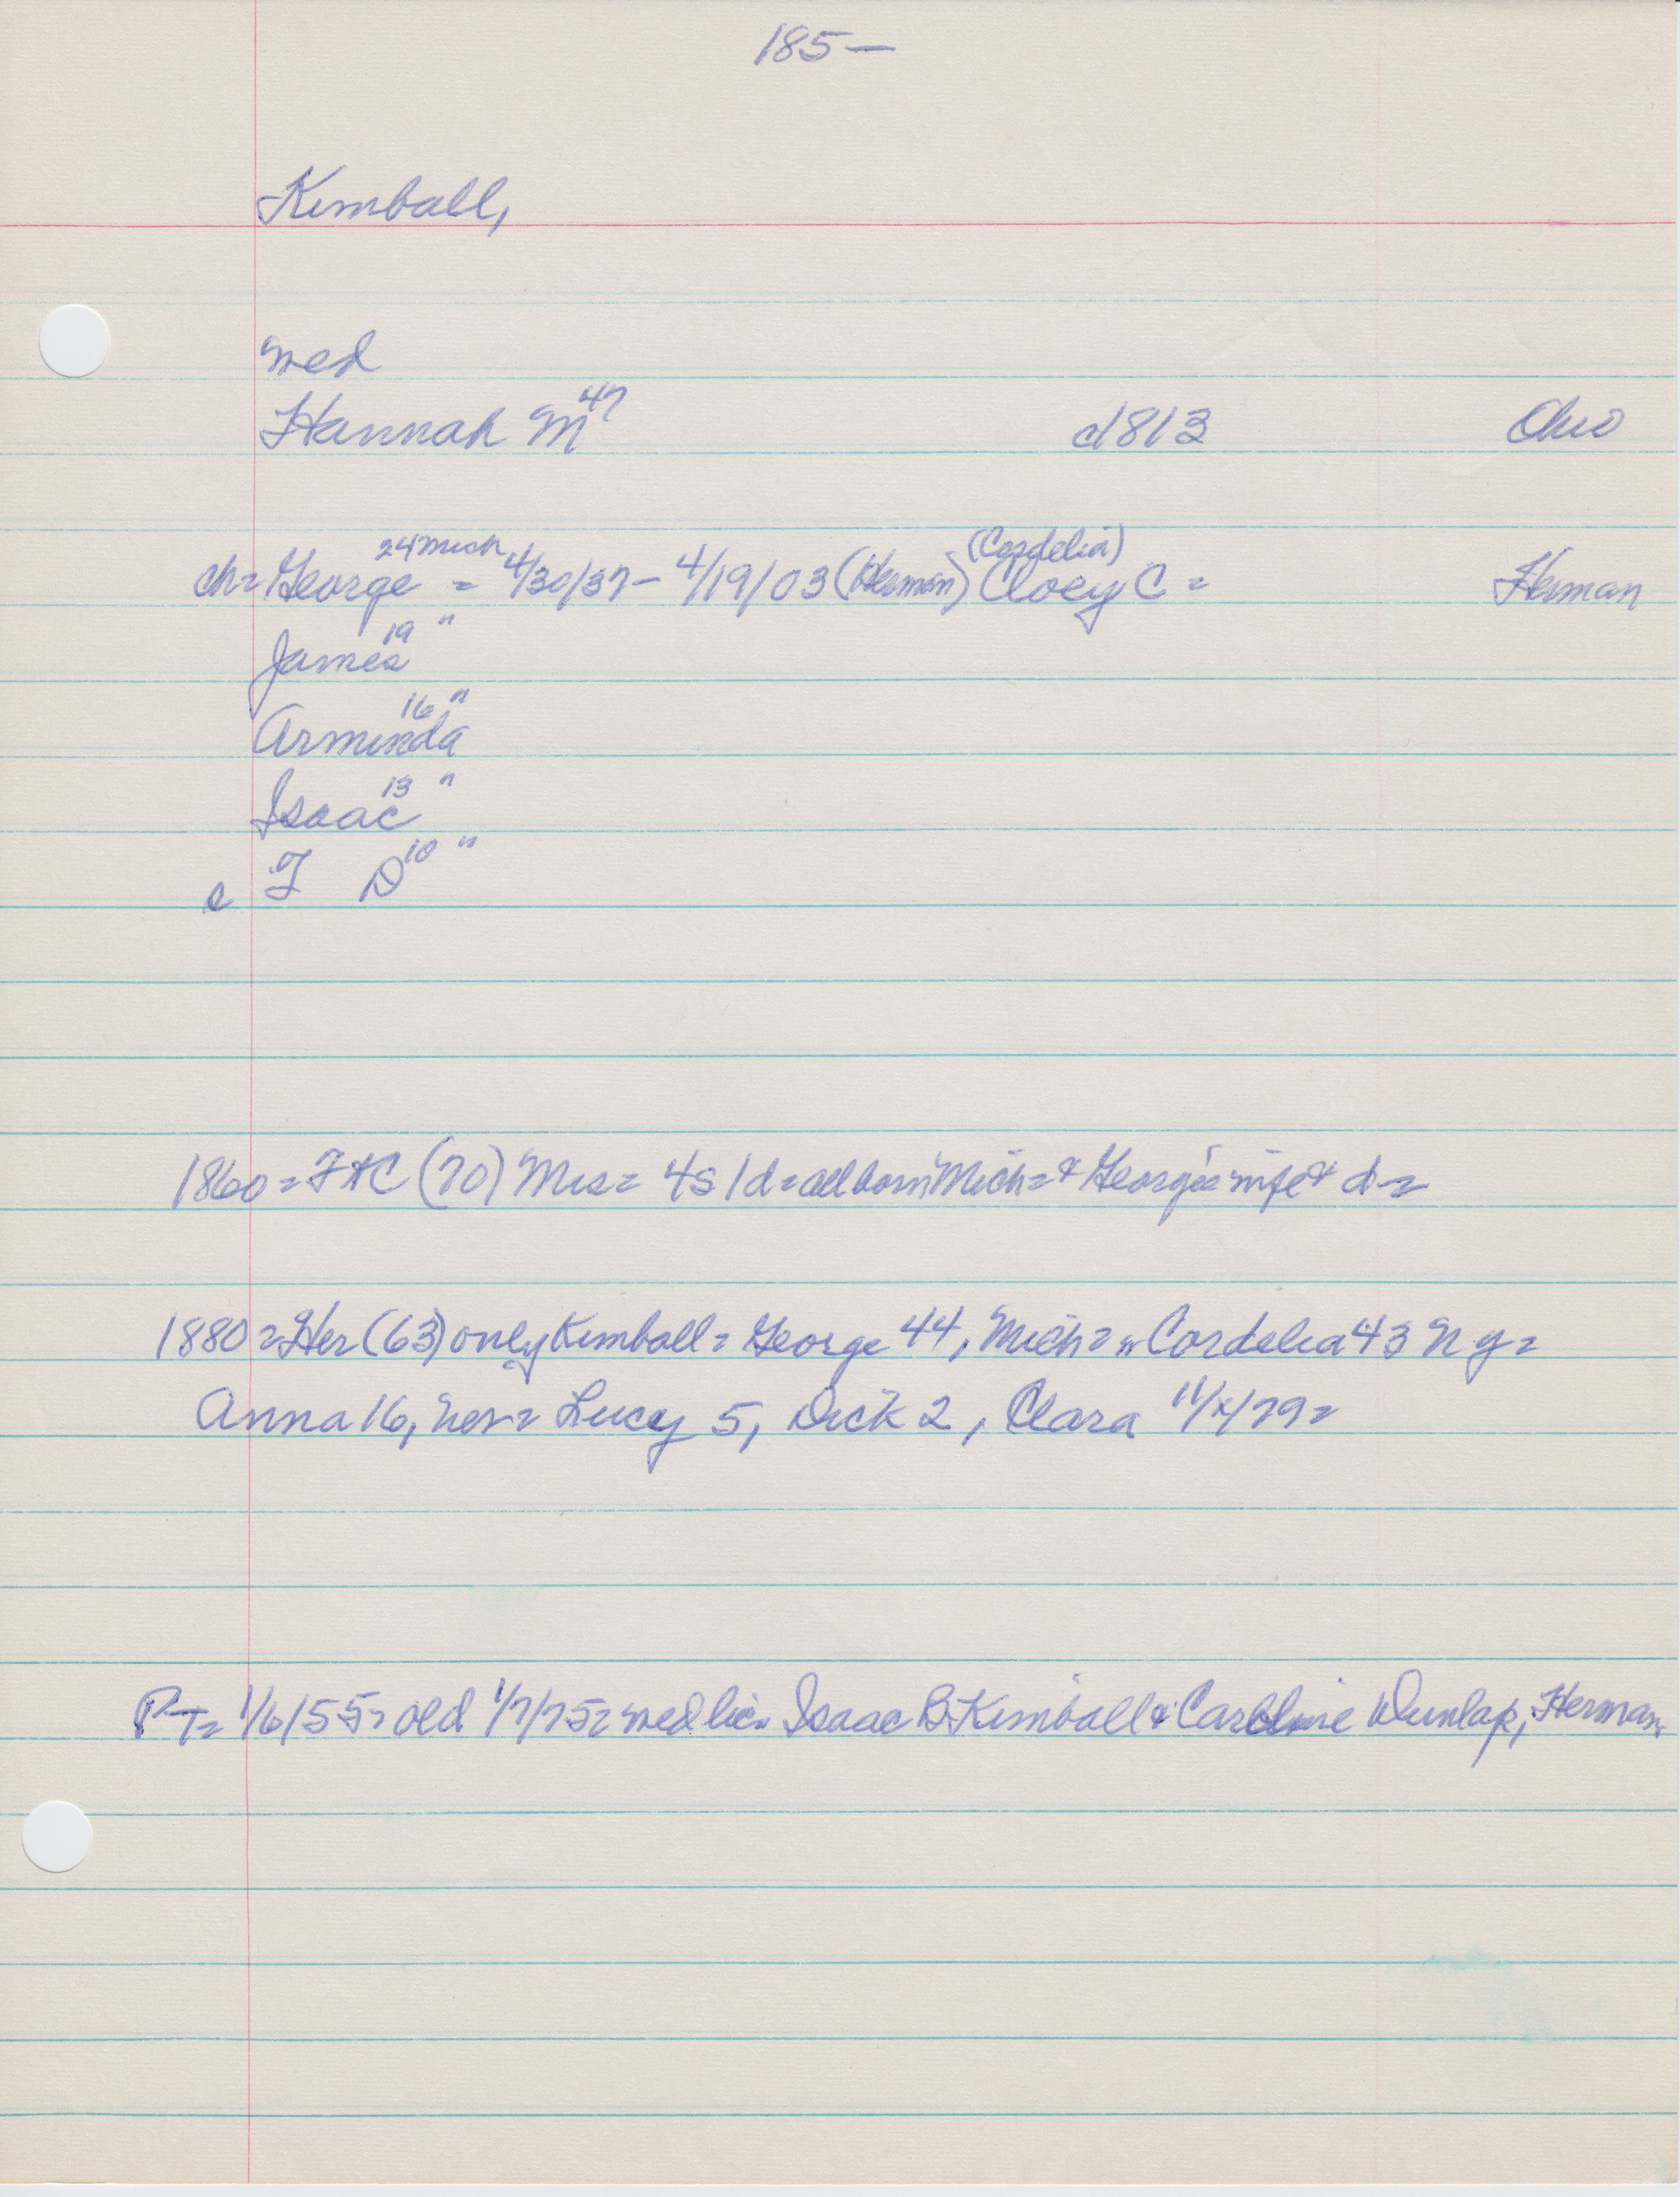 185—
Kimball,
med
Hannah M 47 c1813 Ohio
24 Mich (Cordelia)
ch= George = 4/30/37 - 4/19/03 (Herman) Cloey C = Herman
James 19 "
Arminda 16 "
Isaac 13 "
c I D 10 "
1860 = (70) Mrs = 4s 1d = all born Mich = & George's wife & d =
1880 = Her (63) only Kimball = George 44, Mich = " Cordelia 43 N Y =
Anna 16, = Lucy 5, Dick 2, Clara 11/x/79 =
PT = 1/6/55 = old 1/7/75 = med lic = Isaac B. Kimball & Caroline Dunlap, Herman